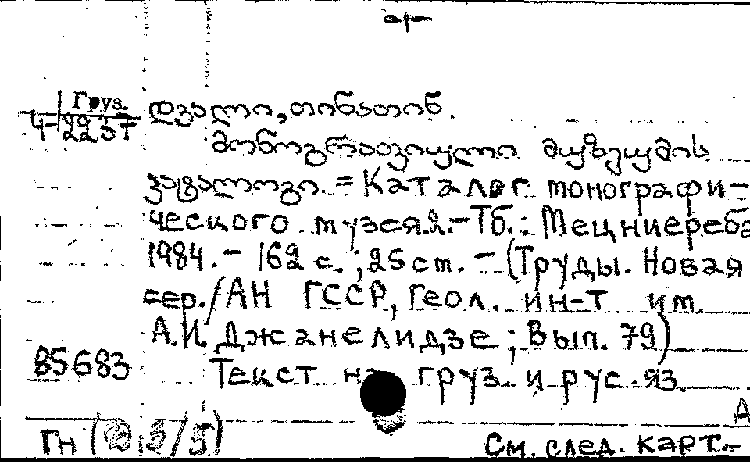 Груз.
4-2237
დვალი, თინათინ.
მონოგრაფიული მუზეუმის
კატალოგი. = Каталог монографи-
ческого музея. - Тб.: Мецниереба
1984. - 162 с.; 25 см. - (Труды. Новая
сер. / АН ГССР, Геол. ин-т им.
А.И. Джанелидзе; Вып. 79)
85683
Текст на груз. и рус. яз.
Гн
См. след. карт.-